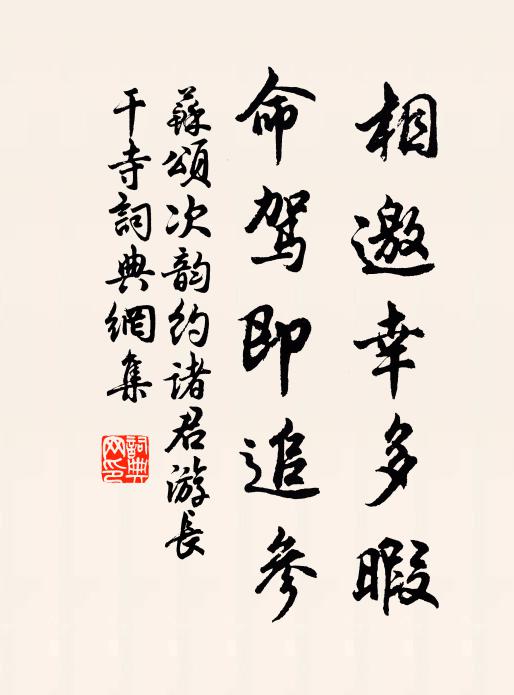 相邀幸多暇
命駕即追參
蘇頌次韵約諸君游長
干寺詞典網集
詞典
网印